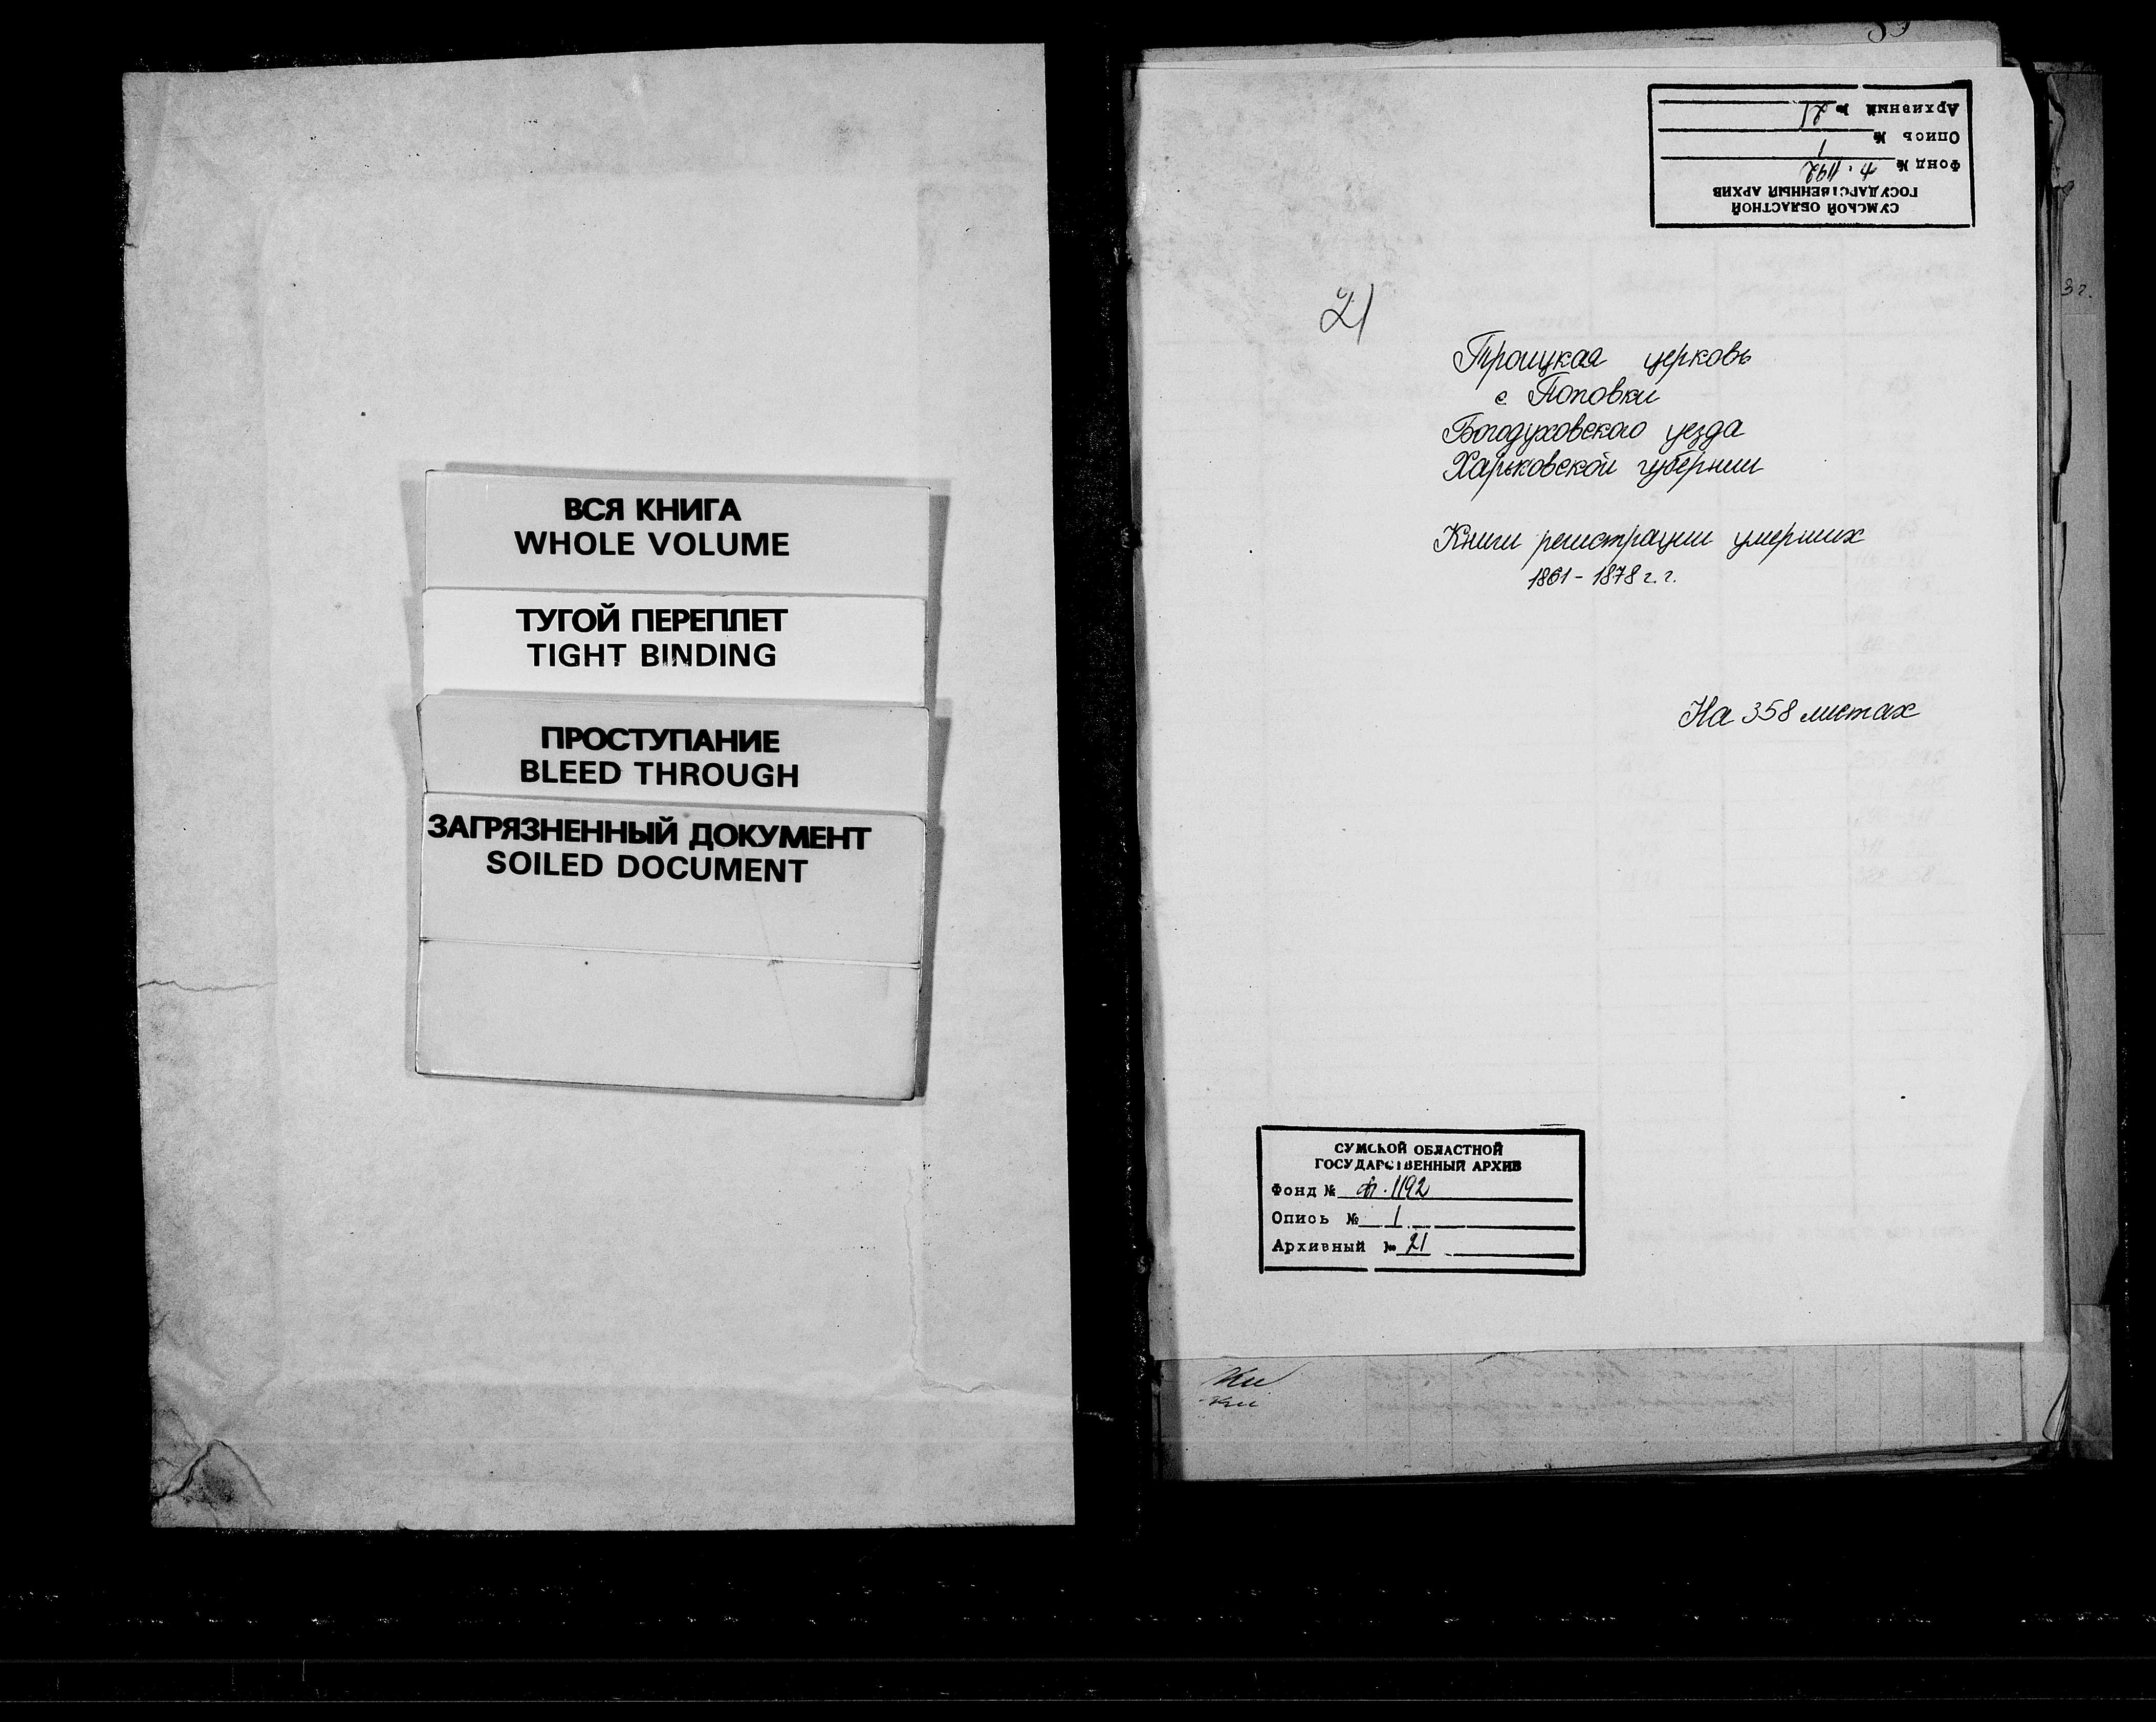 ВСЯ КНИГА
WHOLE VOLUME
ТУГОЙ ПЕРЕПЛЕТ
TIGHT BINDING
ПРОСТУПАНИЕ
BLEED THROUGH
ЗАГРЯЗНЕННЫЙ ДОКУМЕНТ
SOILED DOCUMENT
СУМСКОЙ ОБЛАСТНОЙ
ГОСУДАРСТВЕННЫЙ АРХИВ
Фонд № ф. 1192
Опись № 1
Архивный № 21
21
Троицкая церковь
с. Поповки
Богодуховского уезда
Харьковской губернии
Книги регистрации умерших
1861 - 1878 г. г.
На 358 листах
СУМСКОЙ ОБЛАСТНОЙ
ГОСУДАРСТВЕННЫЙ АРХИВ
Фонд № ф. 1192
Опись № 1
Архивный № 21